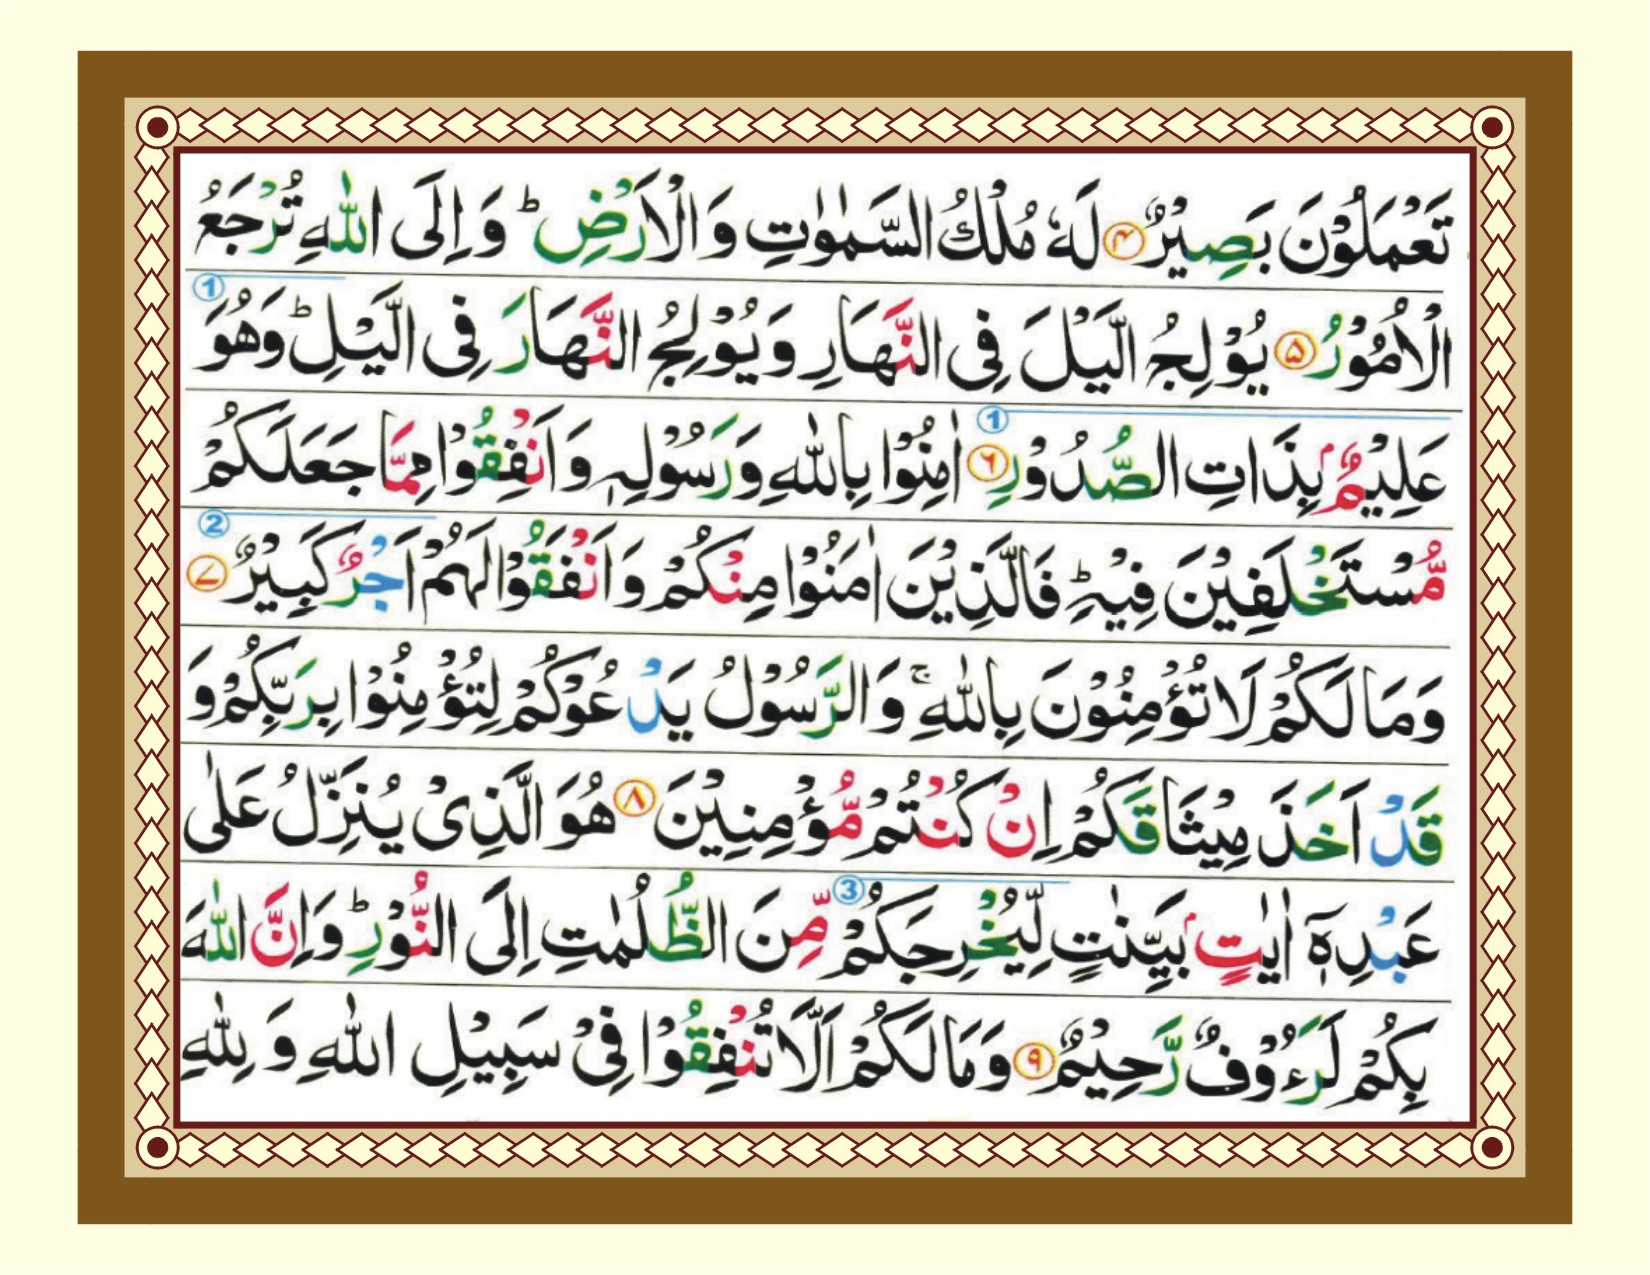 تَعْمَلُوْنَ بَصِيْرٌ ۴ لَهٗ مُلْكُ السَّمٰوٰتِ وَ الْاَرْضِ ؕ وَ اِلَى اللّٰهِ تُرْجَعُ
الْاُمُوْرُ ۵ يُوْلِجُ الَّيْلَ فِى النَّهَارِ وَ يُوْلِجُ النَّهَارَ فِى الَّيْلِ ؕ وَهُوَ ①
عَلِيْمٌۢ بِذَاتِ الصُّدُوْرِ ۶ ① اٰمِنُوْا بِاللّٰهِ وَرَسُوْلِهٖ وَ اَنْفِقُوْا مِمَّا جَعَلَكُمْ
مُّسْتَخْلَفِيْنَ فِيْهِ ؕ فَالَّذِيْنَ اٰمَنُوْا مِنْكُمْ وَ اَنْفَقُوْا لَهُمْ اَجْرٌ كَبِيْرٌ ۷ ②
وَمَا لَكُمْ لَا تُؤْمِنُوْنَ بِاللّٰهِ ۚ وَ الرَّسُوْلُ يَدْعُوْكُمْ لِتُؤْمِنُوْا بِرَبِّكُمْ وَ
قَدْ اَخَذَ مِيْثَاقَكُمْ اِنْ كُنْتُمْ مُّؤْمِنِيْنَ ۸ هُوَ الَّذِىْ يُنَزِّلُ عَلٰى
عَبْدِهٖۤ اٰيٰتٍۢ بَيِّنٰتٍ لِّيُخْرِجَكُمْ ③ مِّنَ الظُّلُمٰتِ اِلَى النُّوْرِ ؕ وَ اِنَّ اللّٰهَ
بِكُمْ لَرَءُوْفٌ رَّحِيْمٌ ۹ وَ مَا لَكُمْ اَلَّا تُنْفِقُوْا فِىْ سَبِيْلِ اللّٰهِ وَ لِلّٰهِ